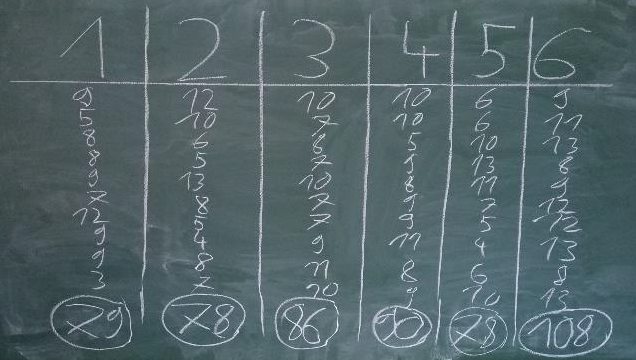 1 2 3 4 5 6
9 12 10 10 6 9
5 10 7 10 6 11
8 6 8 5 10 13
8 5 7 9 13 8
9 13 10 8 11 9
7 8 7 9 7 12
12 5 7 9 5 12
9 4 9 11 4 13
9 8 11 8 6 8
3 7 10 9 10 13
79 78 86 90 78 108